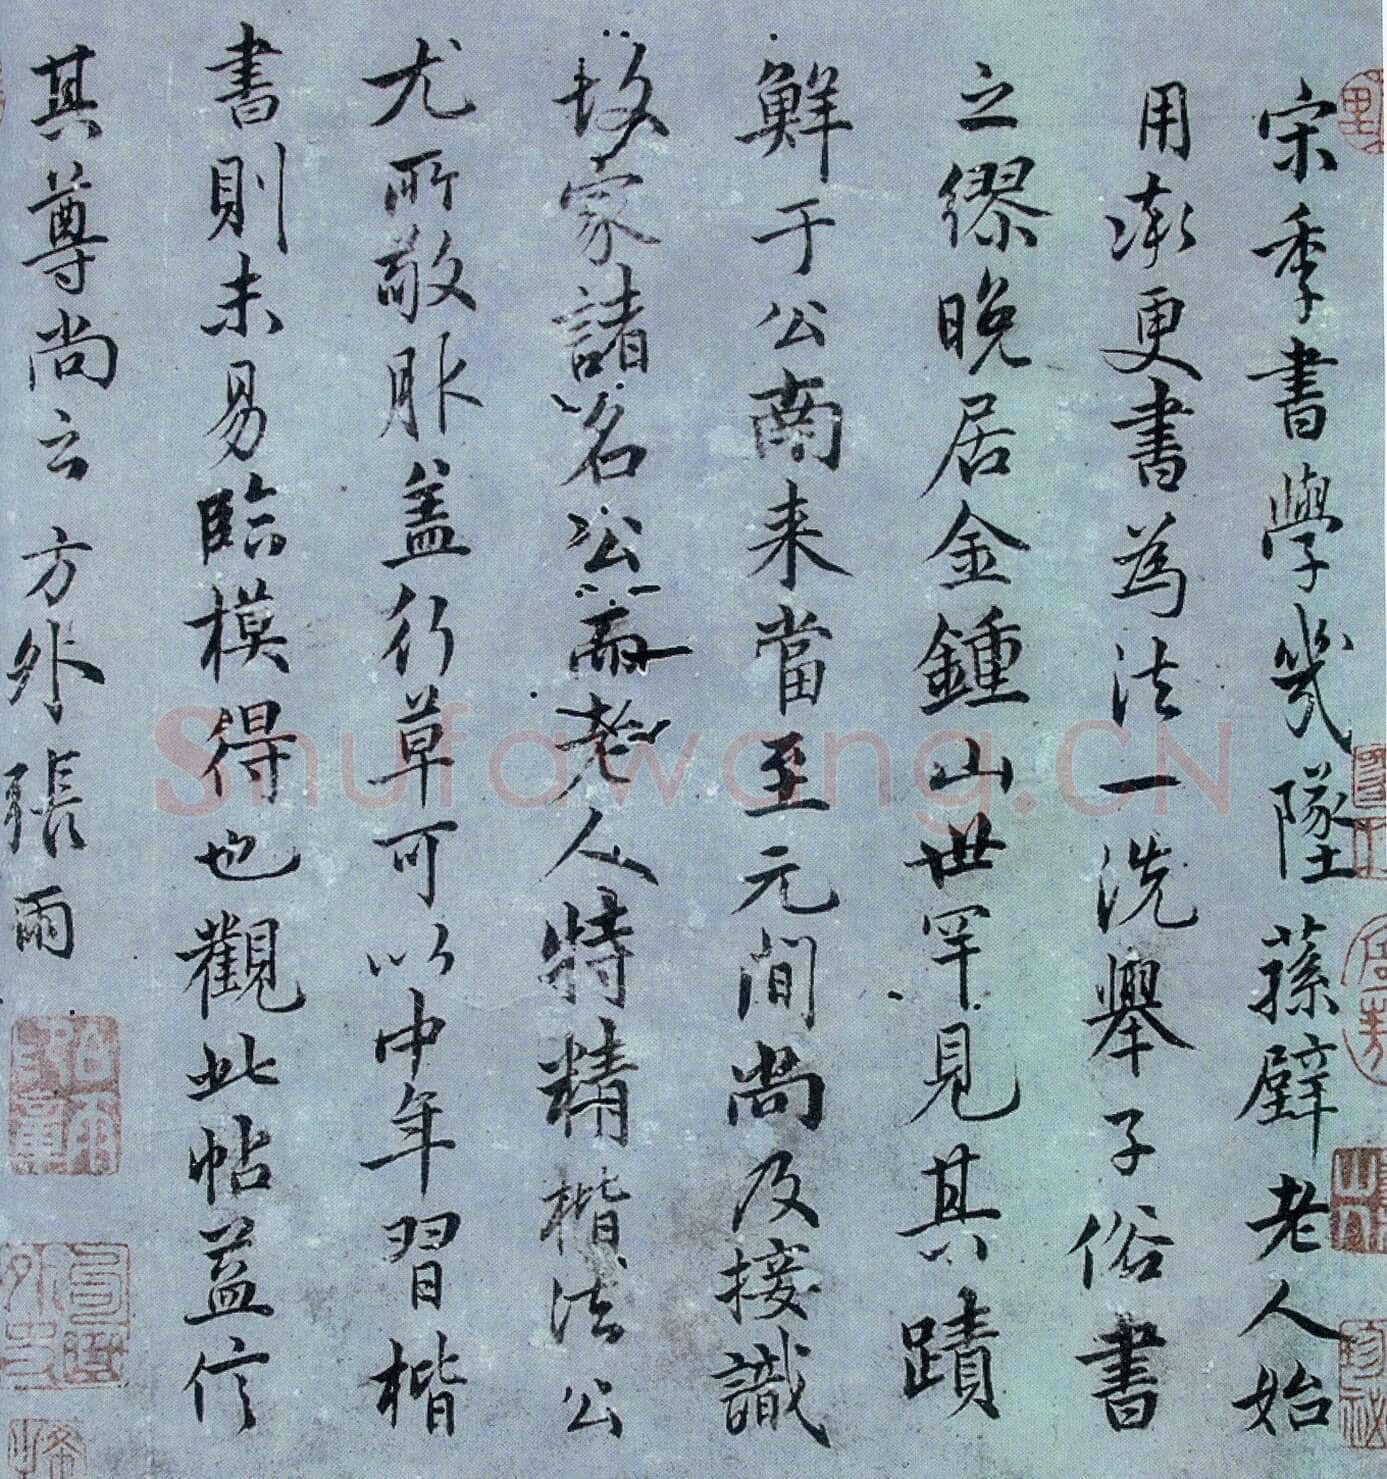 宋季書學幾墜蓀壁老人始
用漸更書為法一洗舉子俗書
之繆晚居金鍾山世罕見其蹟
鮮于公南来當至元間尚及接識
故家諸名公而老人特精楷法公
尤所敬服盖行草可以中年習楷
書則未易臨模得也觀此帖益信
其尊尚云 方外張雨
Shufawang.CN